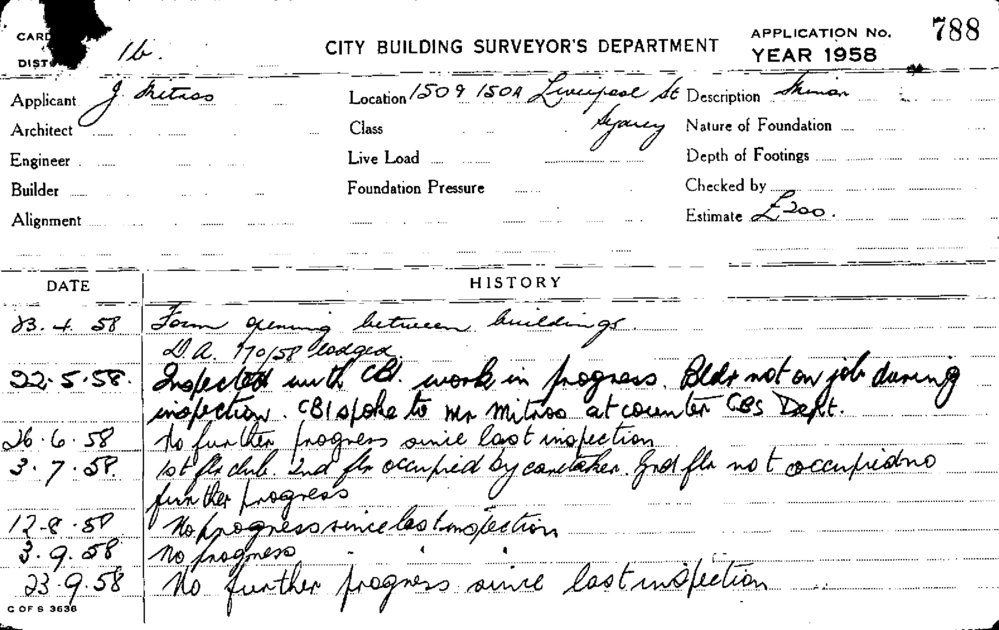 CARD
DIST 1b.
CITY BUILDING SURVEYOR'S DEPARTMENT
APPLICATION No. 788
YEAR 1958
Applicant J. Mitros
Location 150 & 150A Liverpool St Sydney
Description Minor
Architect
Class
Nature of Foundation
Engineer
Live Load
Depth of Footings
Builder
Foundation Pressure
Checked by
Alignment
Estimate £200.
DATE HISTORY
23.4.58 Form opening between buildings.
D.A. 170/58 lodged.
22.5.58. Inspected with CBI. work in progress. Bldr not on job during
inspection. CBI spoke to Mr Mitros at counter CBS Dept.
26.6.58 No further progress since last inspection
3.7.58. 1st flr club. 2nd flr occupied by caretaker. Grd flr not occupied no
further progress
12-8-58 No progress since last inspection
3.9.58 No progress " " "
23.9.58 No further progress since last inspection
C OF S 3636